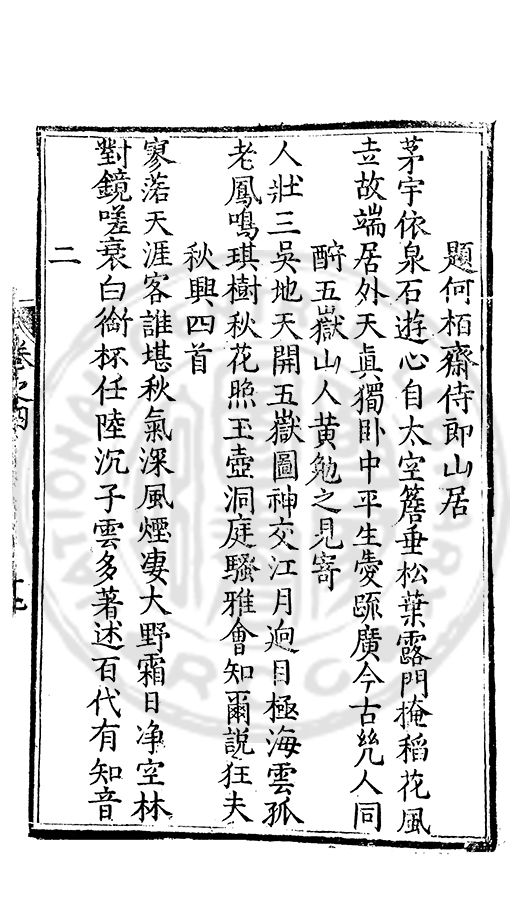 題何栢齋侍郎山居
茅宇依泉石遊心自太空簷垂松葉露門掩稻花風
壴故端居外天真獨卧中平生愛疏廣今古幾人同
酧五嶽山人黄勉之見寄
人壯三吳地天開五嶽圖神交江月逈目極海雲孤
老鳳鳴琪樹秋花照玉壺洞庭騷雅會知爾説狂夫
秋興四首
寥落天涯客誰堪秋氣深風煙凄大野霜日净空林
對鏡嗟衰白銜杯任陸沉子雲多著述百代有知音
二
卷之
十七